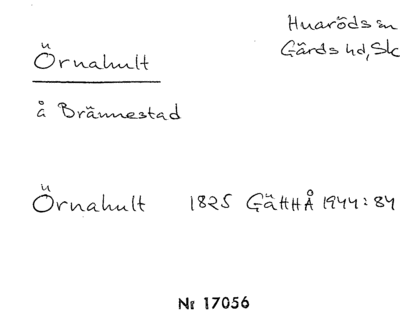 Huaröds sn
Gärds hd, Sk
Örnahult
å Brännestad
Örnahult 1825 GäHHÅ 1944: 84
Nr 17056